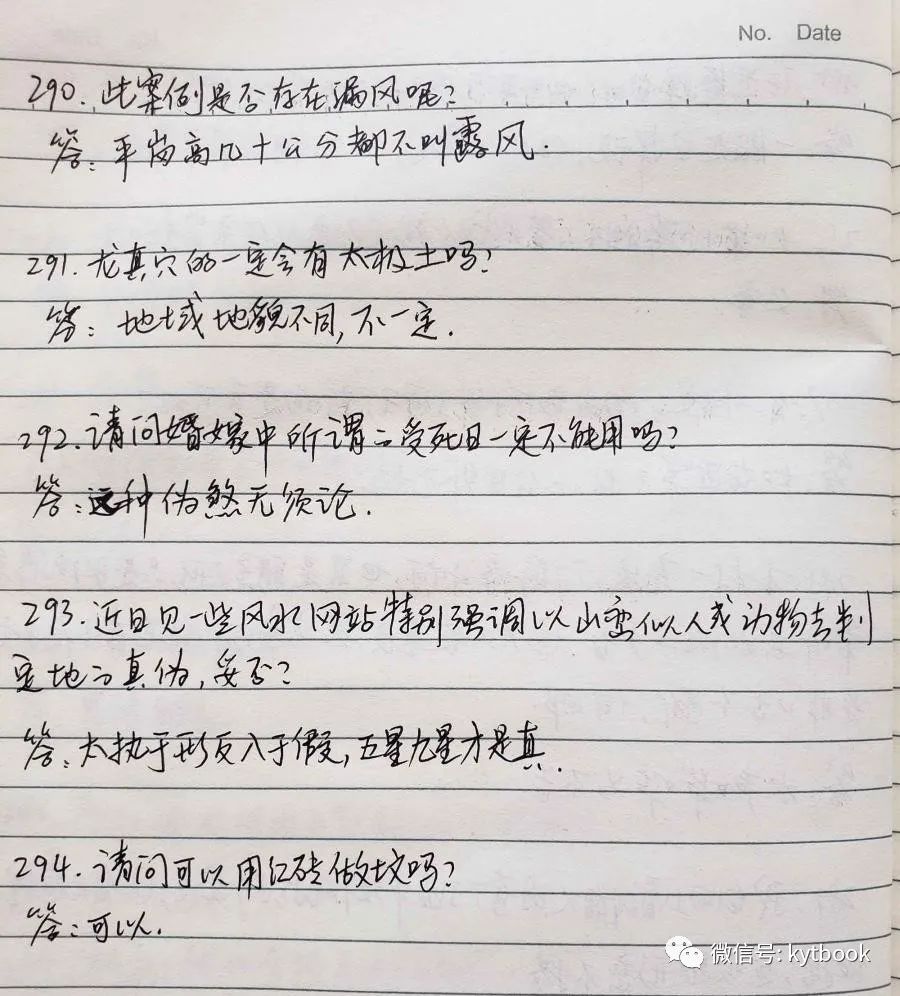 No. Date
290. 此案例是否存在漏风呢?
答: 平岗高几十公分都不叫露风.
291. 龙真穴的一定会有太极土吗?
答: 地域地貌不同, 不一定.
292. 请问婚嫁中所谓之受死日一定不能用吗?
答: 这种伪煞无须论.
293. 近日见一些风水网站特别强调以山峦似人或动物去判
定地之真伪, 妥否?
答: 太执于形反入于假, 五星九星才是真.
294. 请问可以用红砖做坟吗?
答: 可以.
微信号: kytbook